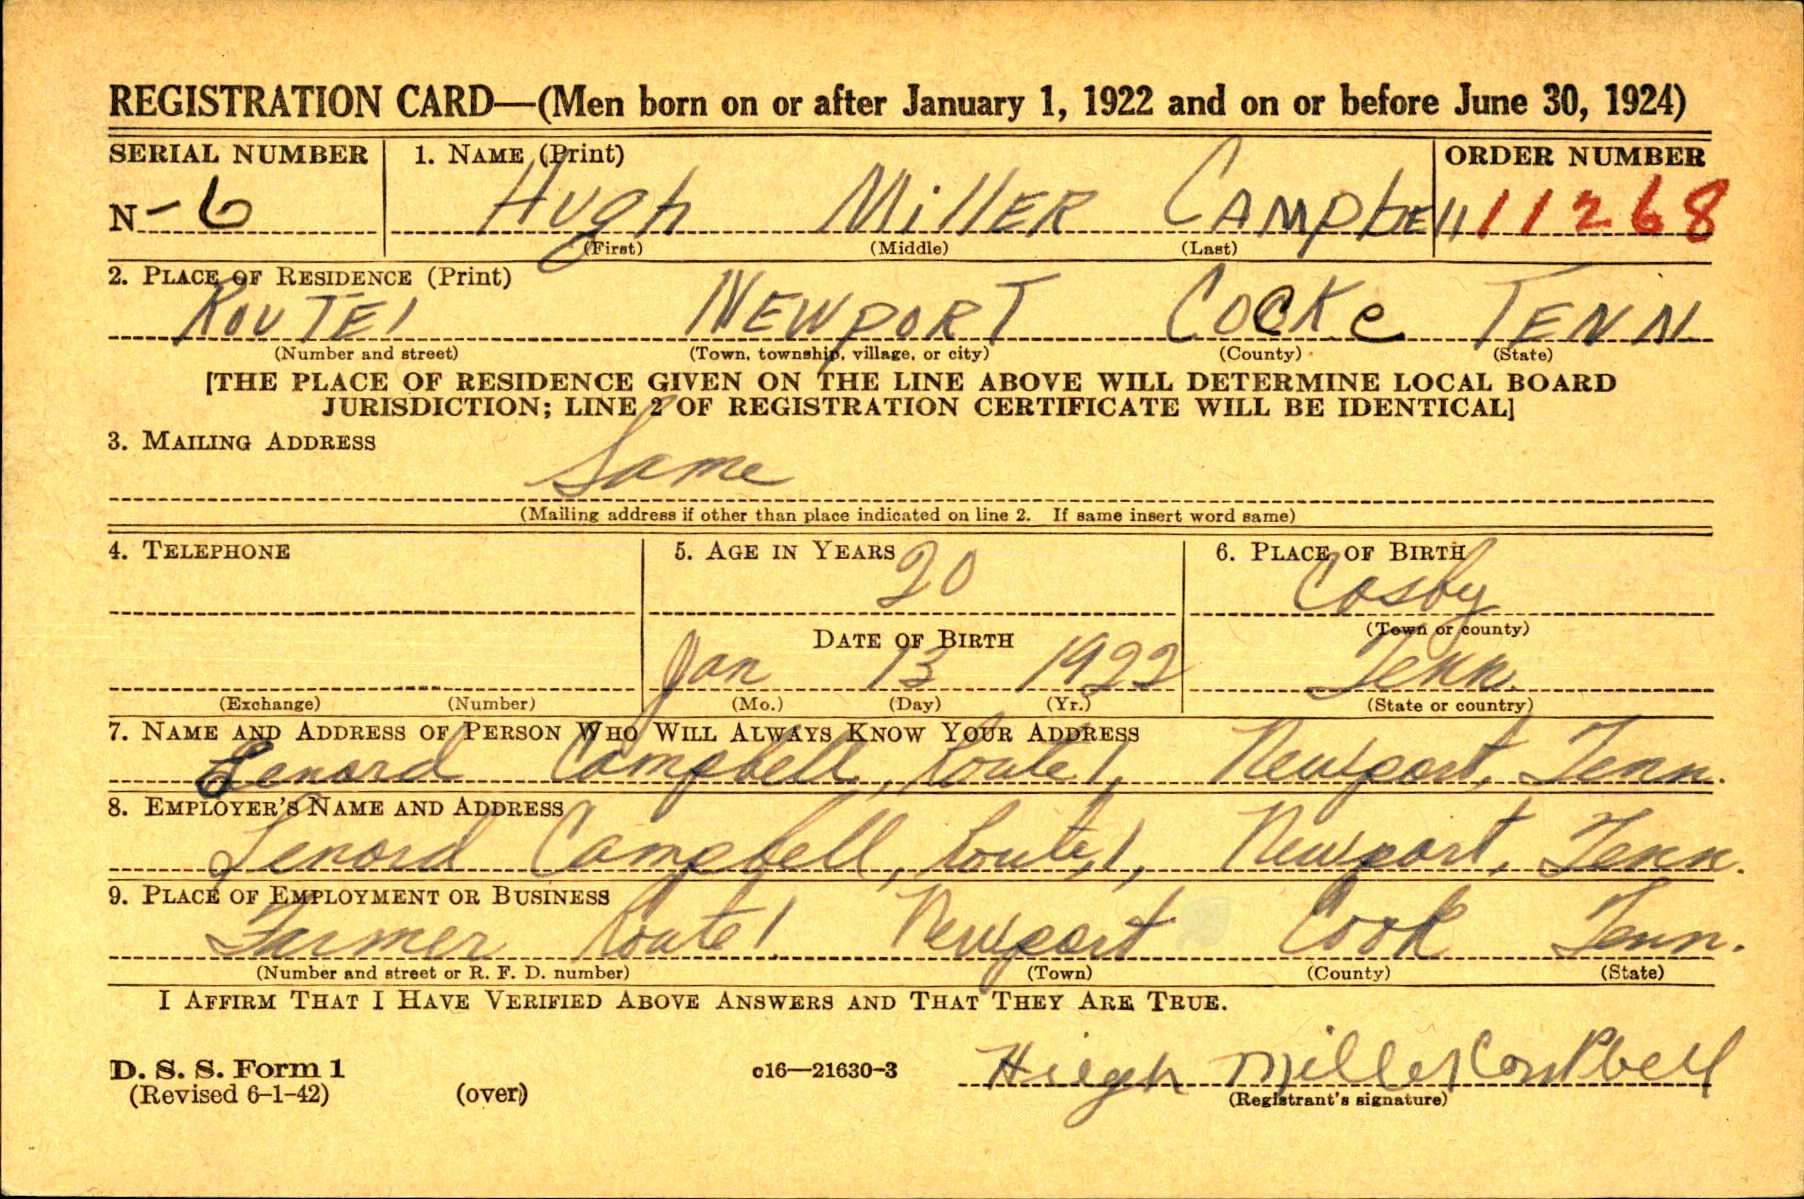 REGISTRATION CARD—(Men born on or after January 1, 1922 and on or before June 30, 1924)
SERIAL NUMBER 1. NAME (Print) ORDER NUMBER
N -6 Hugh MillER CAMpbEll 11268
(First) (Middle) (Last)
2. PLACE OF RESIDENCE (Print)
ROUTE 1 NEWpORT COCKe TENN
(Number and street) (Town, township, village, or city) (County) (State)
[THE PLACE OF RESIDENCE GIVEN ON THE LINE ABOVE WILL DETERMINE LOCAL BOARD
JURISDICTION; LINE 2 OF REGISTRATION CERTIFICATE WILL BE IDENTICAL]
3. MAILING ADDRESS
Same
(Mailing address if other than place indicated on line 2. If same insert word same)
4. TELEPHONE 5. AGE IN YEARS 6. PLACE OF BIRTH
20 Cosby
(Town or county)
DATE OF BIRTH
Jan 13 1922 Tenn.
(Exchange) (Number) (Mo.) (Day) (Yr.) (State or country)
7. NAME AND ADDRESS OF PERSON WHO WILL ALWAYS KNOW YOUR ADDRESS
Lenord Campbell, Route 1, Newport, Tenn.
8. EMPLOYER'S NAME AND ADDRESS
Lenord Campbell, Route 1, Newport, Tenn.
9. PLACE OF EMPLOYMENT OR BUSINESS
Farmer Route 1 Newport Cook Tenn.
(Number and street or R. F. D. number) (Town) (County) (State)
I AFFIRM THAT I HAVE VERIFIED ABOVE ANSWERS AND THAT THEY ARE TRUE.
D. S. S. Form 1 c16—21630-3 Hugh Miller Campbell
(Revised 6-1-42) (over) (Registrant's signature)